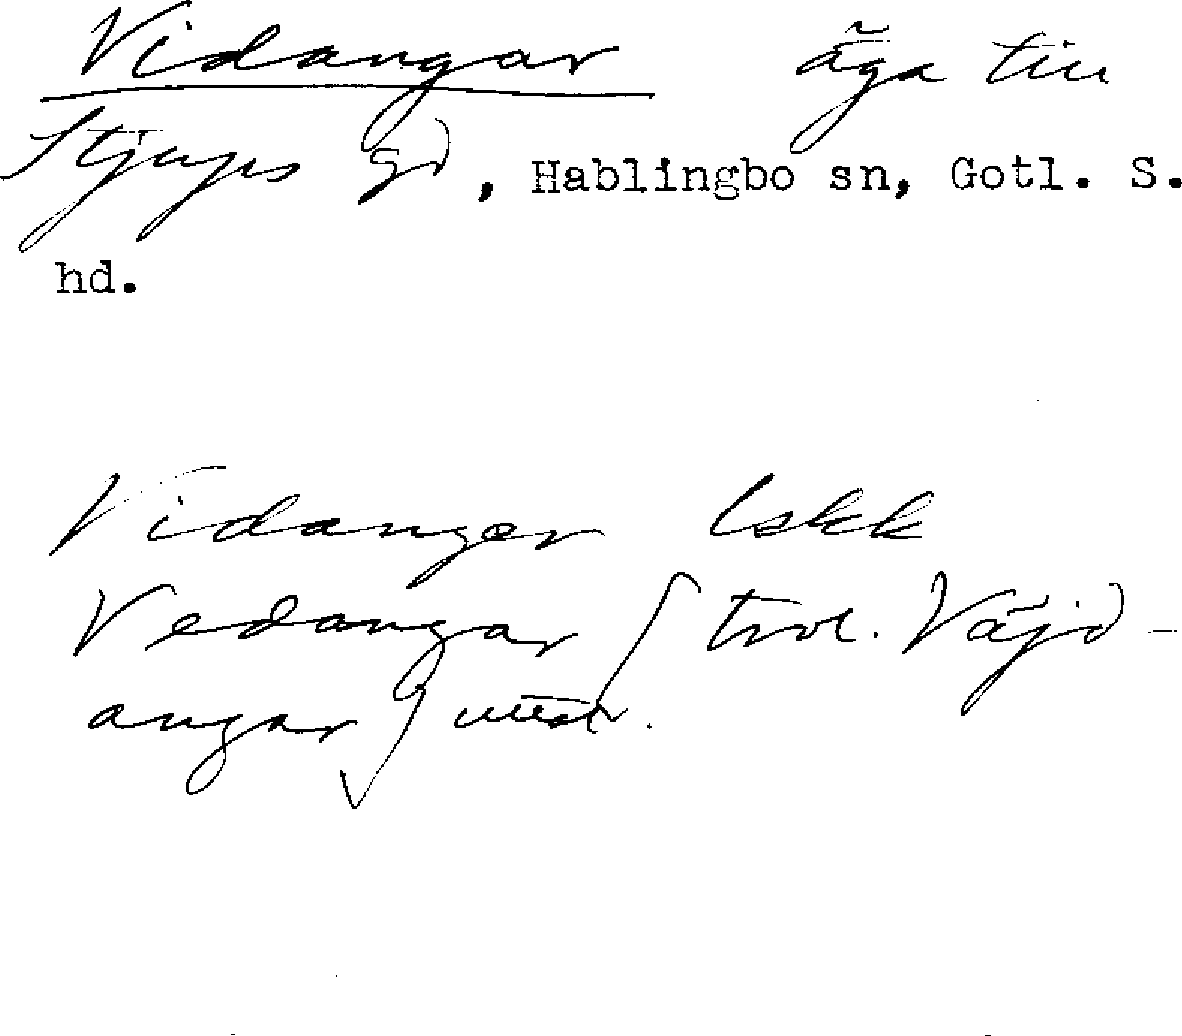 Vidangar äga till
Stjups gd, Hablingbo sn, Gotl. S.
hd.
Vidanger lskk
Vedangar / trol. Väjd-
angar / uttal.